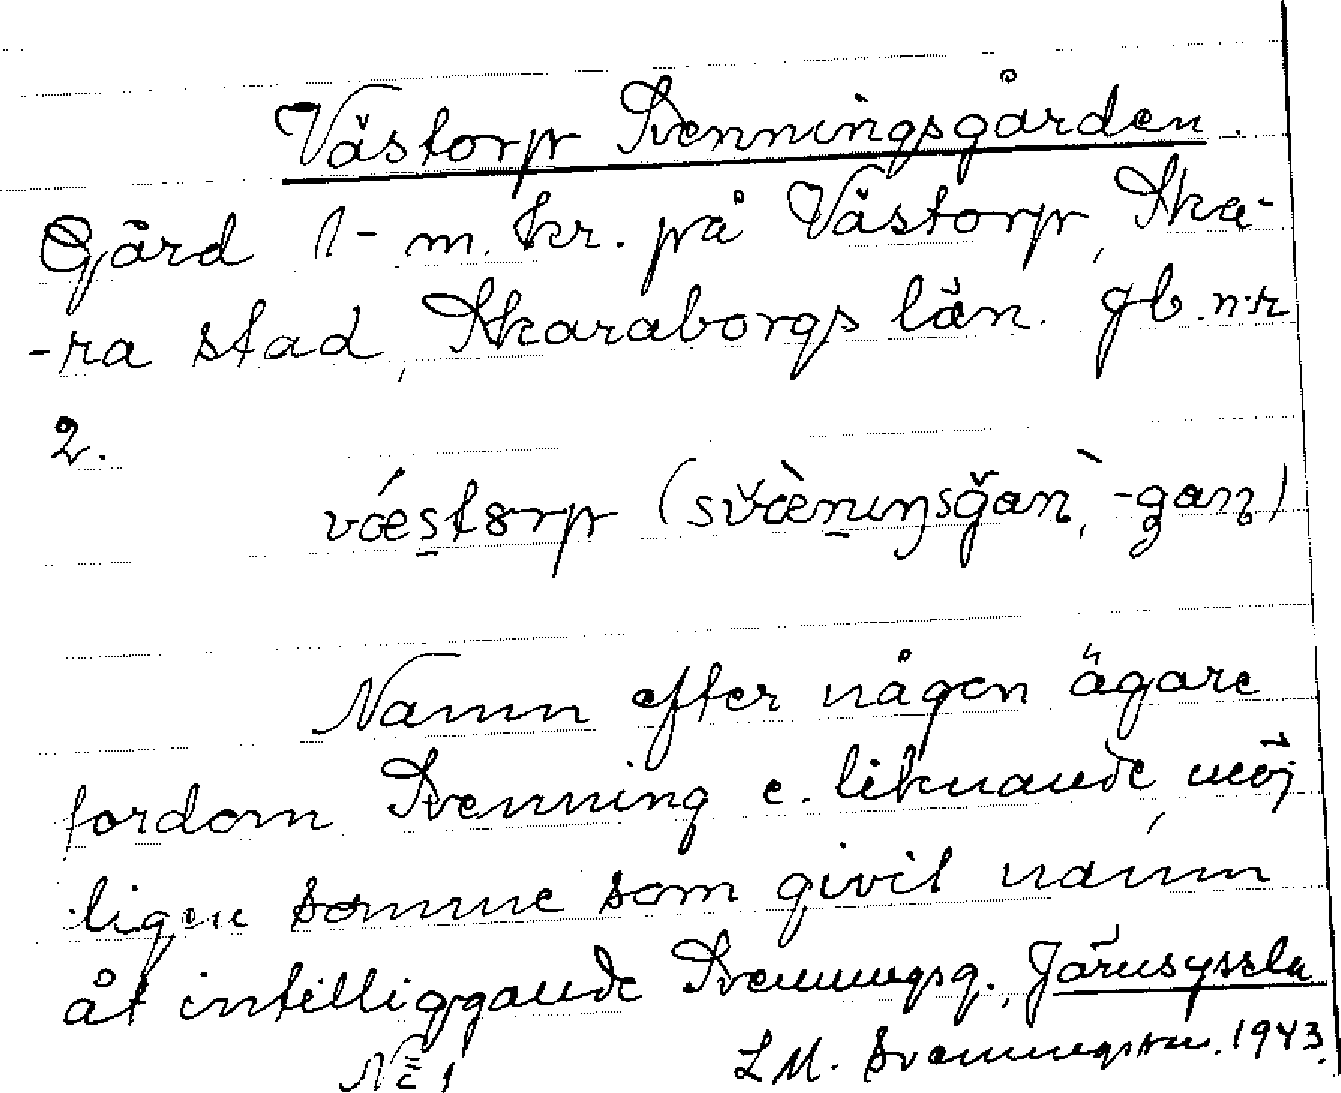 Västorp Svenningsgården.
Gård 1- m. kr. på Västorp, Ska-
-ra stad, Skaraborgs län. Jb. n:r
2.
vǽstɤrp (svæ̀nıŋsgan, -gaɳ)
Namn efter någon ägare
fordom Svenning e. liknande, möj
ligen samme som givit namn
åt intilliggande Svenningsg., Järnsyssla
L M. Svenningsson. 1943.